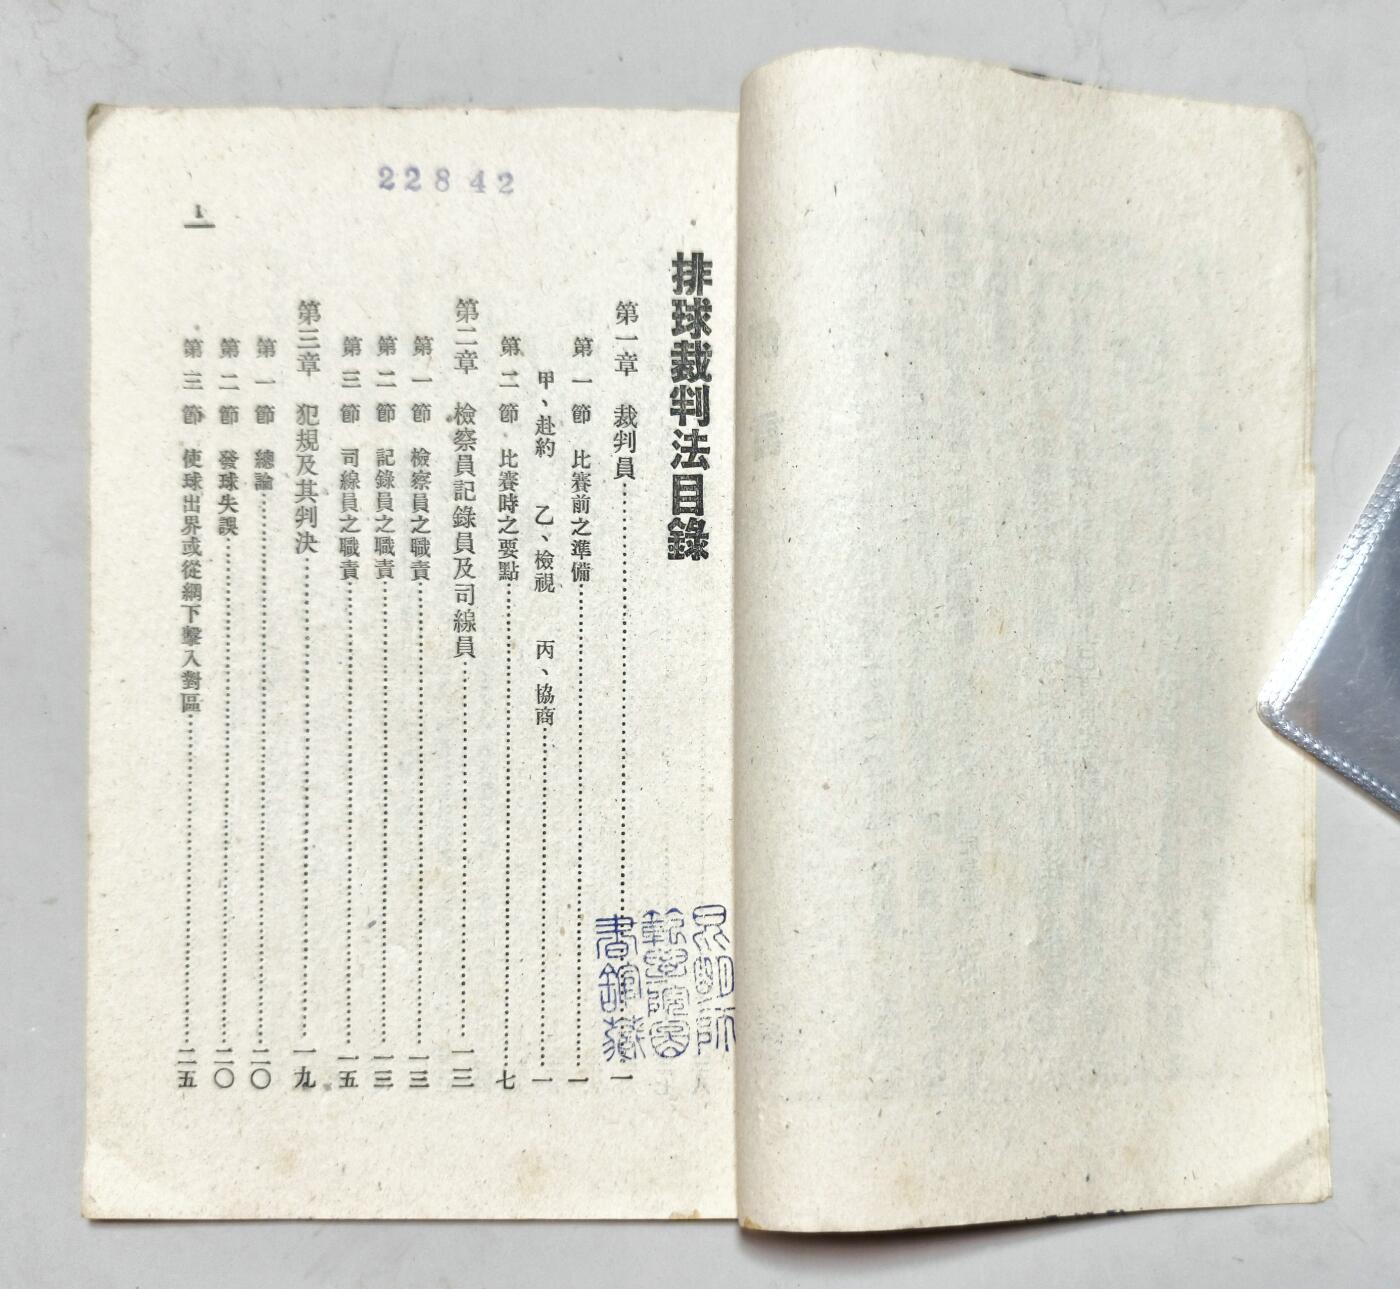 22842
排球裁判法目錄
第一章 裁判員……一
第一節 比賽前之準備……一
甲、赴約 乙、檢視 丙、協商……一
第二節 比賽時之要點……七
第二章 檢察員記錄員及司線員……一三
第一節 檢察員之職責……一三
第二節 記錄員之職責……一三
第三節 司線員之職責……一五
第三章 犯規及其判決……一九
第一節 總論……二〇
第二節 發球失誤……二〇
第三節 使球出界或從網下擊入對區……二五
1
昆明師
範學院圖
書館藏